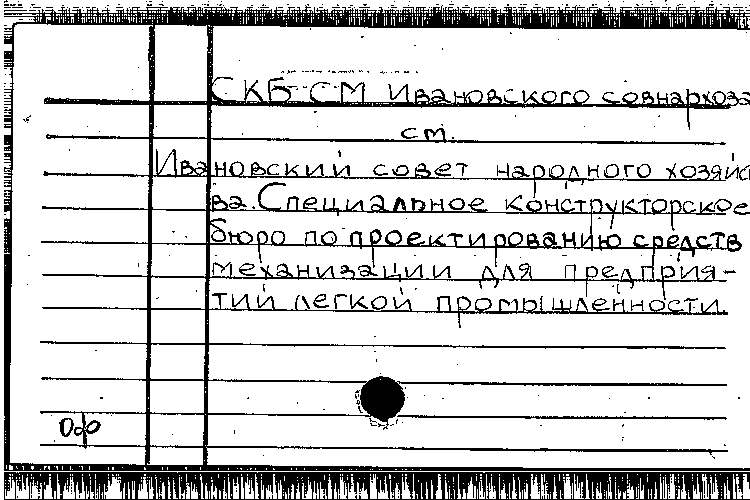 СКБ СМ Ивановского совнархоза
см.
Ивановский совет народного хозяйс
ва. Специальное конструкторское
бюро по проектированию средств
механизации для предприя-
тий легкой промышленности.
Офо